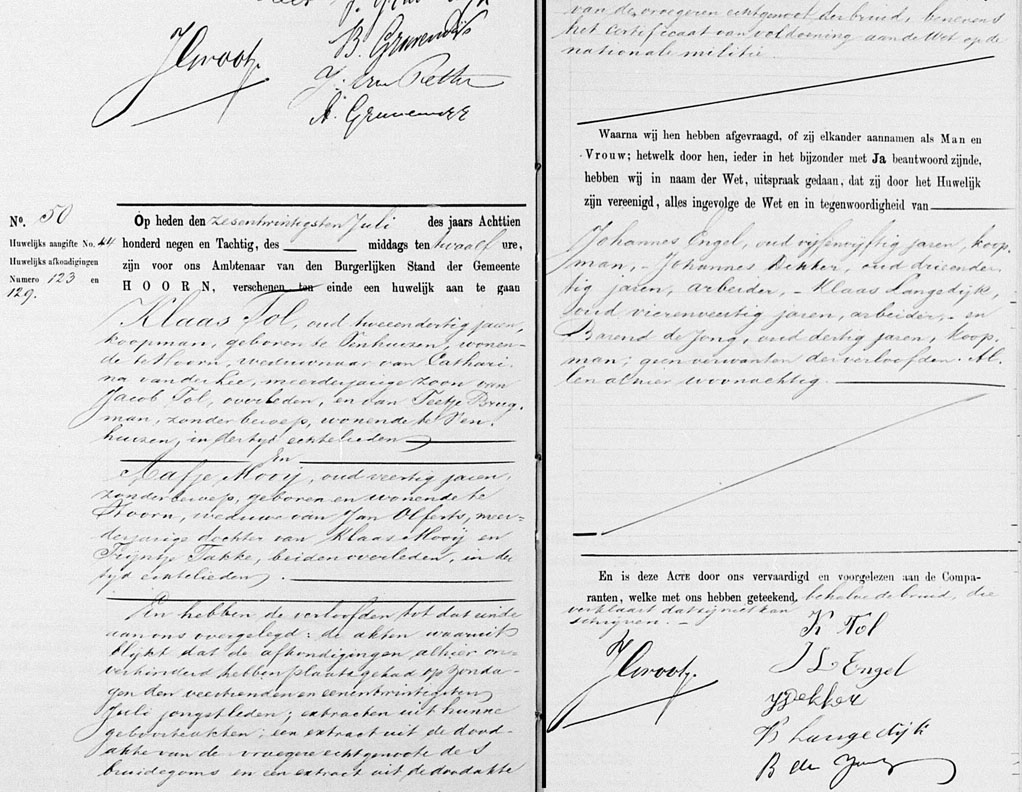 J Groot.
B. Gravendijk
N°. 50
Huwelijks aangifte No. 44
Huwelijks afkondigingen
Numero 123 en
129.
Op heden den zesentwintigsten Juli des jaars Achttien
honderd negen en Tachtig, des middags ten twaalf ure,
zijn voor ons Ambtenaar van den Burgerlijken Stand der Gemeente
HOORN, verschenen ten einde een huwelijk aan te gaan
Klaas Tol, oud tweeendertig jaren,
koopman, geboren te Venhuizen, wonen-
de te Hoorn, weduwnaar van Cathari-
na van der Lee, meerderjarige zoon van
Jacob Tol, overleden, en van Teetje Brug-
man, zonder beroep, wonende te Ven-
huizen, in der tijd echtelieden
En
Aafje Mooij, oud veertig jaren,
zonder beroep, geboren en wonende te
Hoorn, weduwe van Jan Olferts, meer-
derjarige dochter van Klaas Mooij en
Trijntje Takke, beiden overleden, in der
tijd echtelieden.
En hebben de verloofden tot dat einde
aan ons overgelegd: de akten waaruit
blijkt dat de afkondigingen alhier on-
verhinderd hebben plaats gehad op Zonda-
gen den veertienden en eenentwintigsten
Juli jongstleden; extracten uit hunne
geboorteakten; een extract uit de dood-
akte van de vroegere echtgenoote des
bruidegoms en een extract uit de doodakte
van de vroegeren echtgenoot der bruid, benevens
het certificaat van voldoening aan de Wet op de
nationale militie.
Waarna wij hen hebben afgevraagd, of zij elkander aannamen als Man en
Vrouw; hetwelk door hen, ieder in het bijzonder met Ja beantwoord zijnde,
hebben wij in naam der Wet, uitspraak gedaan, dat zij door het Huwelijk
zijn vereenigd, alles ingevolge de Wet en in tegenwoordigheid van
Johannes Engel, oud vijfenvijftig jaren, koop-
man, - Johannes Bekker, oud drieender-
tig jaren, arbeider, - Klaas Langedijk,
oud vierenveertig jaren, arbeider, - en
Barend de Jong, oud dertig jaren, koop-
man; geen verwanten der verloofden. Al-
len alhier woonachtig.
En is deze ACTE door ons vervaardigd en voorgelezen aan de Compa-
ranten, welke met ons hebben geteekend, behalve de bruid, die
verklaart dat zij niet kan
schrijven. -
K Tol
J Groot.
J L Engel
J Bekker
K Langedijk
B de Jong